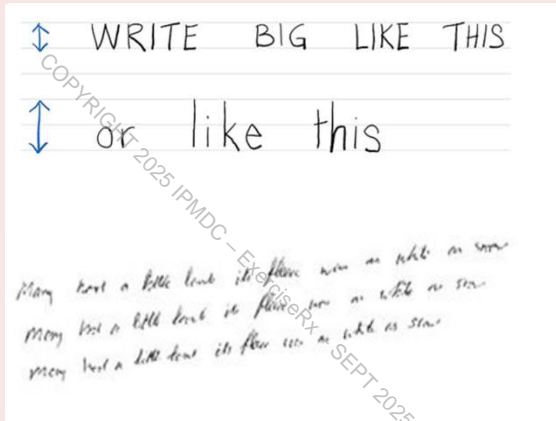 WRITE BIG LIKE THIS
or like this
COPYRIGHT 2025 IPMDC – ExerciseRx – SEPT 2025
Mary had a little lamb its fleece was as white as snow
Mary had a little lamb its fleece was as white as snow
Mary had a little lamb its fleece was as white as snow